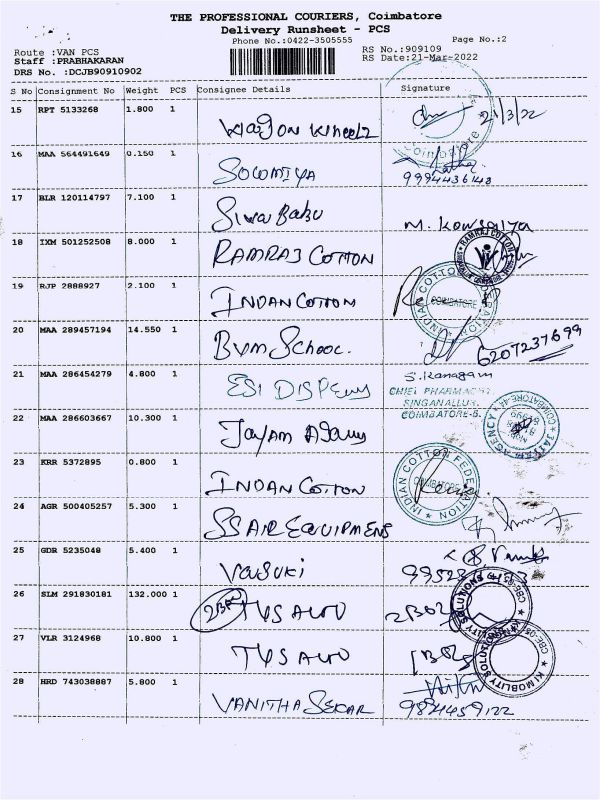 THE PROFESSIONAL COURIERS, Coimbatore
Delivery Runsheet - PCS
Phone No.:0422-3505555
Page No.:2
Route :VAN PCS
RS No.:909109
Staff :PRABHAKARAN
RS Date:21-Mar-2022
DRS No. :DCJB90910902
S No Consignment No Weight PCS Consignee Details Signature
15 RPT 5133268 1.800 1 Wagon Wheelz 21/3/22
Coimbatore
16 MAA 564491649 0.150 1 SOWMIYA Latha
9994436148
17 BLR 120114797 7.100 1 Siva Babu M. Kowsalya
18 IXM 501252508 8.000 1 RAMRAJ COTTON RAMRAJ COTTON
19 RJP 2888927 2.100 1 INDAN COTTON INDIAN COTTON COIMBATORE
20 MAA 289457194 14.550 1 Bvm School. 6207237699
21 MAA 286454279 4.800 1 ESI DISPensy S. Kanagam
CHIEF PHARMACIST
SINGANALLUR,
COIMBATORE-5.
22 MAA 286603667 10.300 1 Jayam Agency AGENCY
23 KRR 5372895 0.800 1 INDAN COTTON INDIAN COTTON FEDERATION COIMBATORE
24 AGR 500405257 5.300 1 SS AIR EQUIPMENS
25 GDR 5235048 5.400 1 Vasuki
26 SLM 291830181 132.000 1 2Box TVS AUTO 2Box
27 VLR 3124968 10.800 1 TVS AUTO 1Box KI MOBILITY SOLUTIONS CBE-05
28 HRD 743038887 5.800 1 VANITHA SEKAR
9894459122